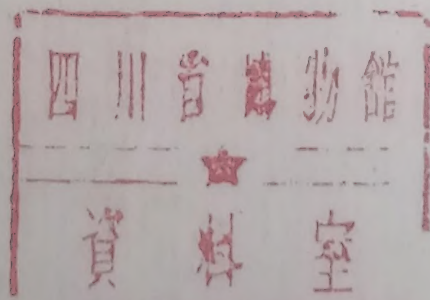 四川省博物館
資料室